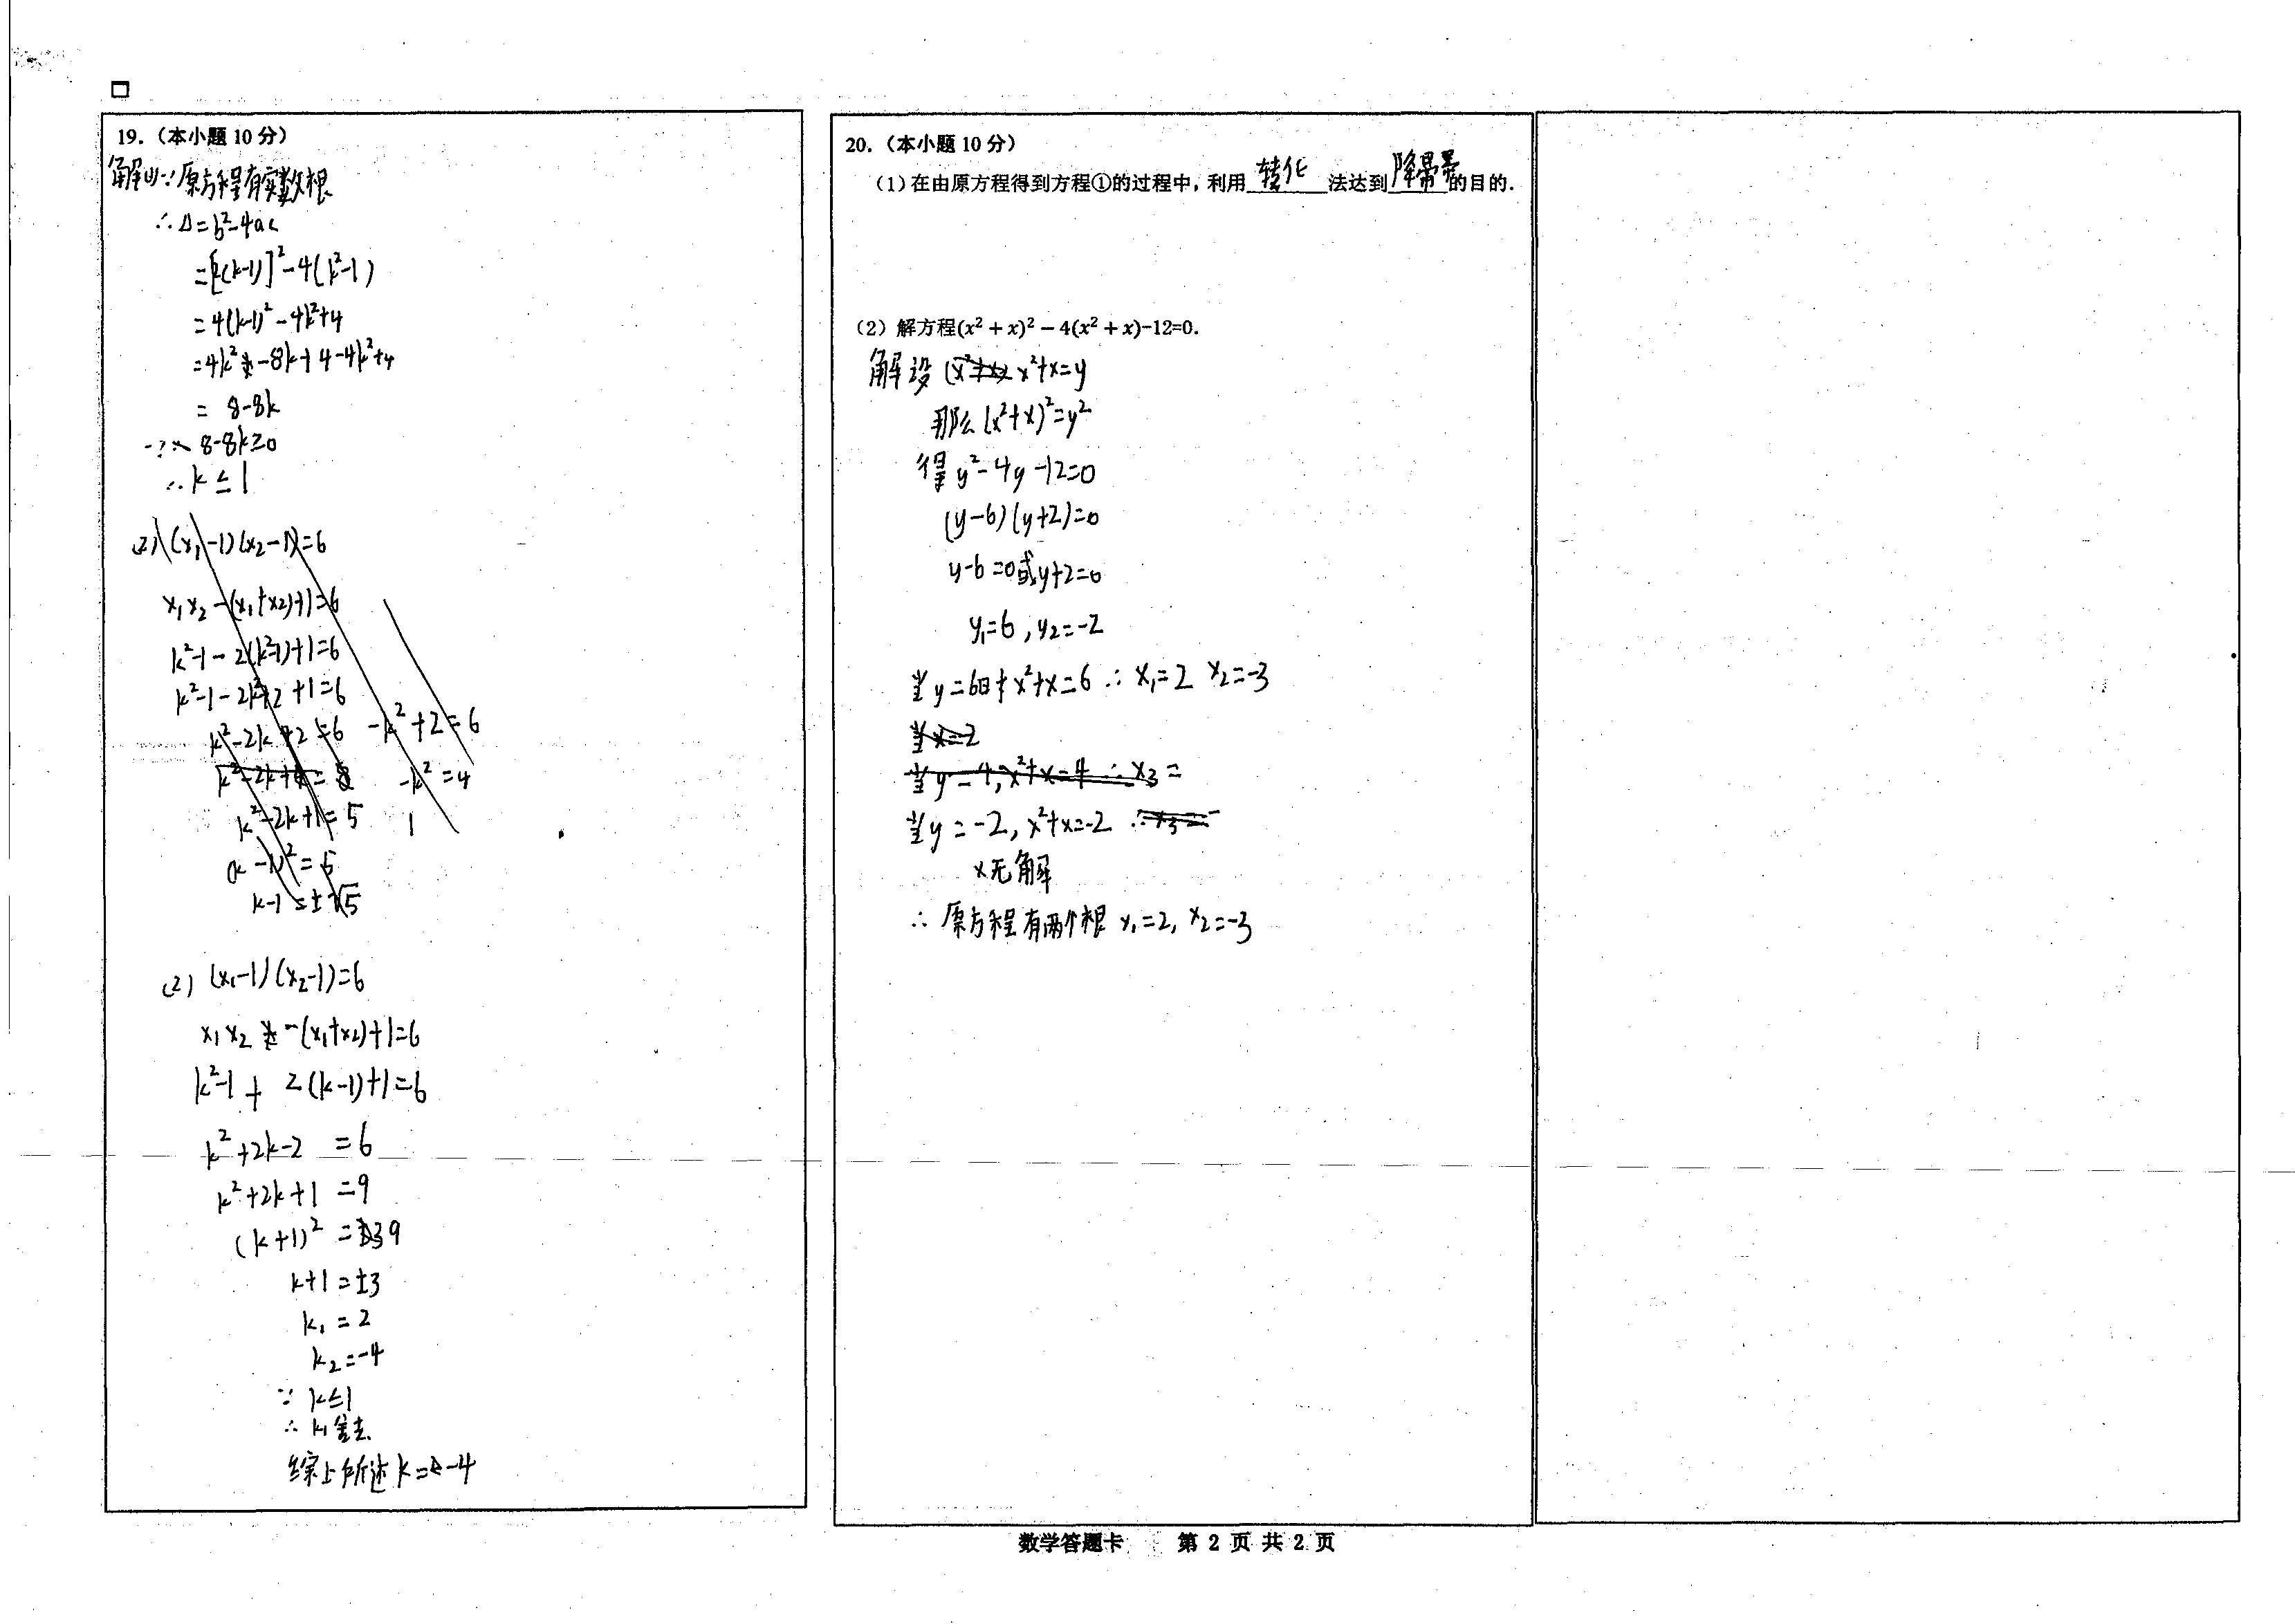 19.（本小题 10 分）
解(1)∵原方程有实数根
∴Δ=b²-4ac
=[2(k-1)]²-4(k²-1)
=4(k-1)²-4k²+4
=4k²-8k+4-4k²+4
= 8-8k
8-8k≥0
∴k≤1
(2)(x₁-1)(x₂-1)=6
x₁x₂-(x₁+x₂)+1=6
k²-1-2(k²-1)+1=6
k²-1-2k²+2+1=6
k²-2k+2=6 -k²+2=6
-k²=4
k²-2k+1=5
(k-1)²=5
k-1=±√5
(2) (x₁-1)(x₂-1)=6
x₁x₂-(x₁+x₂)+1=6
k²-1+2(k-1)+1=6
k²+2k-2=6
k²+2k+1=9
(k+1)²=9
k+1=±3
k₁=2
k₂=-4
∵ k≤1
∴ k₁舍去
综上所述k=-4
20.（本小题 10 分）
（1）在由原方程得到方程①的过程中，利用 转化 法达到 降幂 的目的.
（2）解方程(x² + x)² − 4(x² + x)-12=0.
解设 x²+x=y
那么(x²+x)²=y²
得 y²-4y-12=0
(y-6)(y+2)=0
y-6=0或y+2=0
y₁=6,y₂=-2
当y=6时x²+x=6 ∴x₁=2 x₂=-3
当x=2
当y=4,x²+x=4 ∴x₃=
当y=-2,x²+x=-2
x无解
∴原方程有两个根x₁=2,x₂=-3
数学答题卡 第 2 页 共 2 页